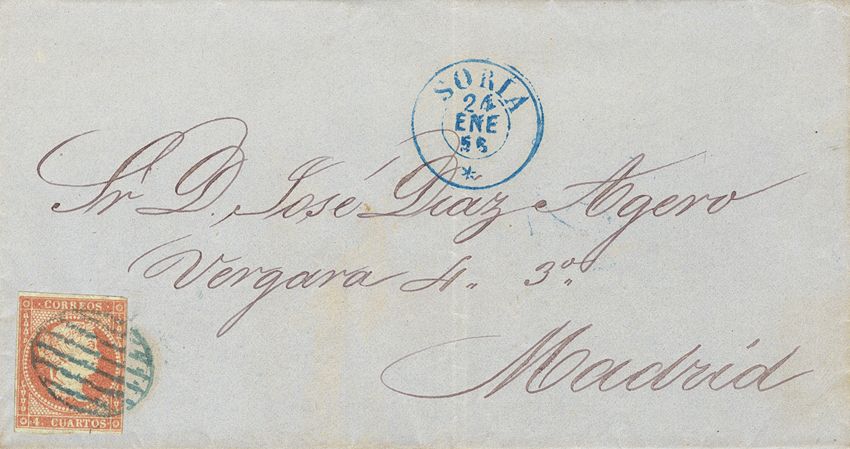 SORIA
24
ENE
56
Sr. D. José Diaz Agero
Vergara 4. 3º
Madrid
CORREOS
4. CUARTOS